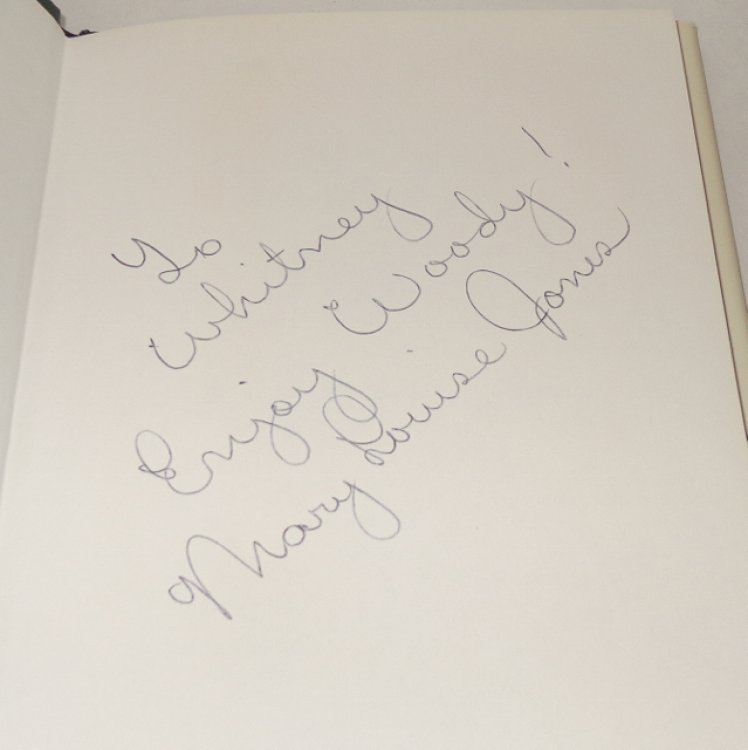 To
Whitney
Enjoy Woody!
Mary Louise Jones